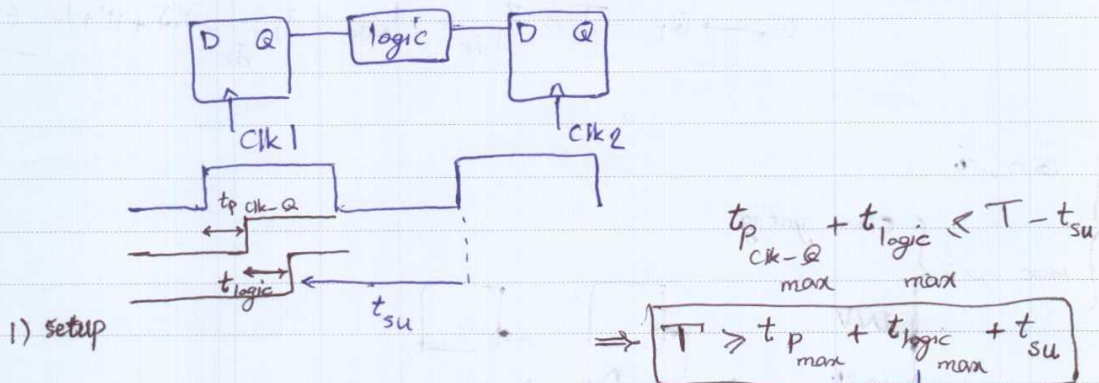 D Q logic D Q
Clk1 Clk2
t_p Clk-Q
t_logic
t_su
t_p Clk-Q max + t_logic max ≤ T - t_su
1) setup
⇒ T ≥ t_p max + t_logic max + t_su